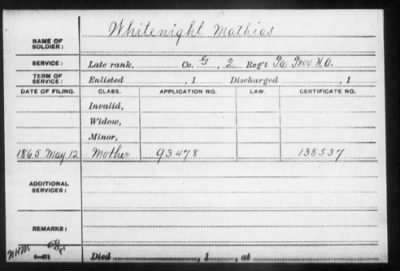 NAME OF SOLDIER: Whitenight Mathias
SERVICE: Late rank, Co. G, 2 Reg't Pa Prov H.A.
TERM OF SERVICE: Enlisted , 1 Discharged , 1
DATE OF FILING. CLASS. APPLICATION NO. LAW. CERTIFICATE NO.
Invalid,
Widow,
Minor,
1865 May 12 Mother 93478 138537
ADDITIONAL SERVICES:
REMARKS:
Died , 1 , at